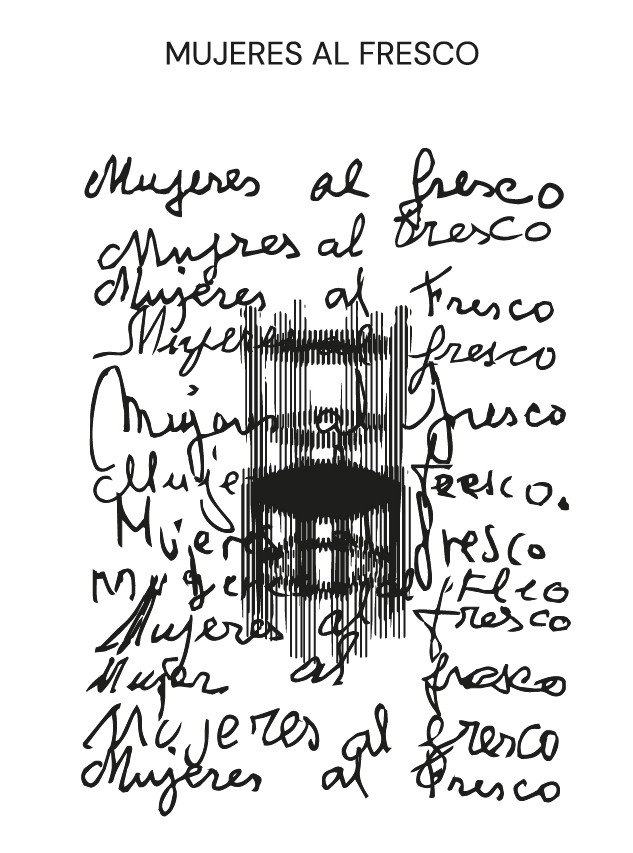 MUJERES AL FRESCO
Mujeres al fresco
Mujres al fresco
Mujeres al Fresco
Mujeres al fresco
Mujeres al fresco
Muje fresco.
Mujeres fresco
Mujeres al
Mujeres al fresco
Mujer al fresco
Mujeres al fresco
Mujeres al fresco